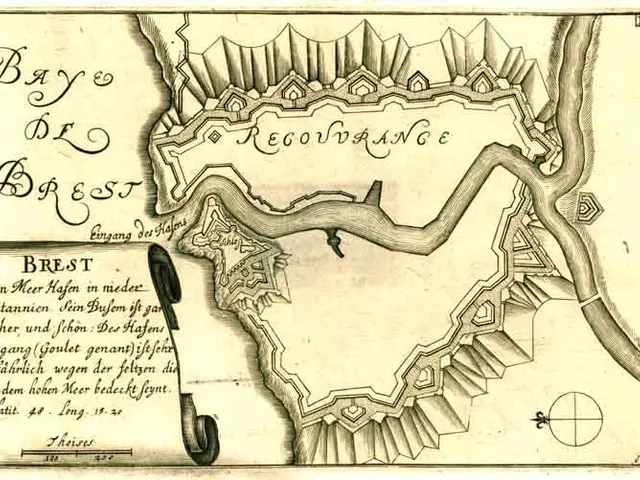 BAYE
DE
BREST
RECOUVRANGE
Eingang des Hafens
Schlos
BREST
n Meer Hafen in nieder
itannien. Sein Busem ist gar
cher, und schön: Des Hafens
gang (Goulet genant) ist sehr
fährlich wegen der feltzen die
dem hohen Meer bedeckt seynt.
latit. 48. Long. 15. 20
Thoises
100 200